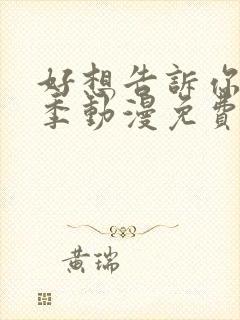 好想告訴你
季動漫免費
黃瑞